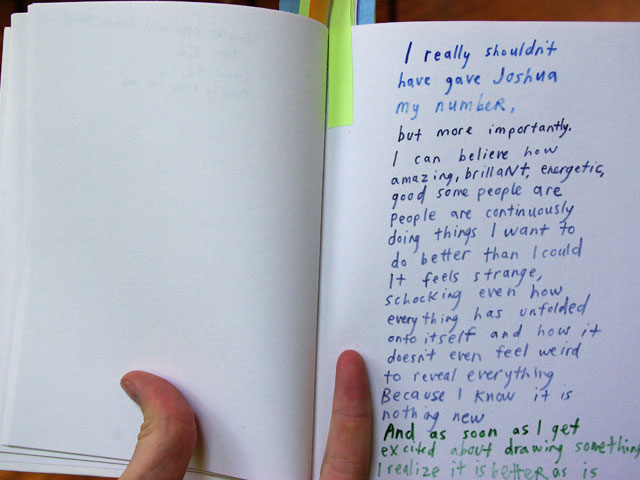 I really shouldn't
have gave Joshua
my number,
but more importantly.
I can believe how
amazing, brillaNt, energetic,
good some people are
people are continuously
doing things I want to
do better than I could
It feels strange,
schocking even how
everything has unfolded
onto itself and how it
doesn't even feel weird
to reveal everything
Because I know it is
nothing new
And as soon as I get
excited about drawing something
I realize it is better as is